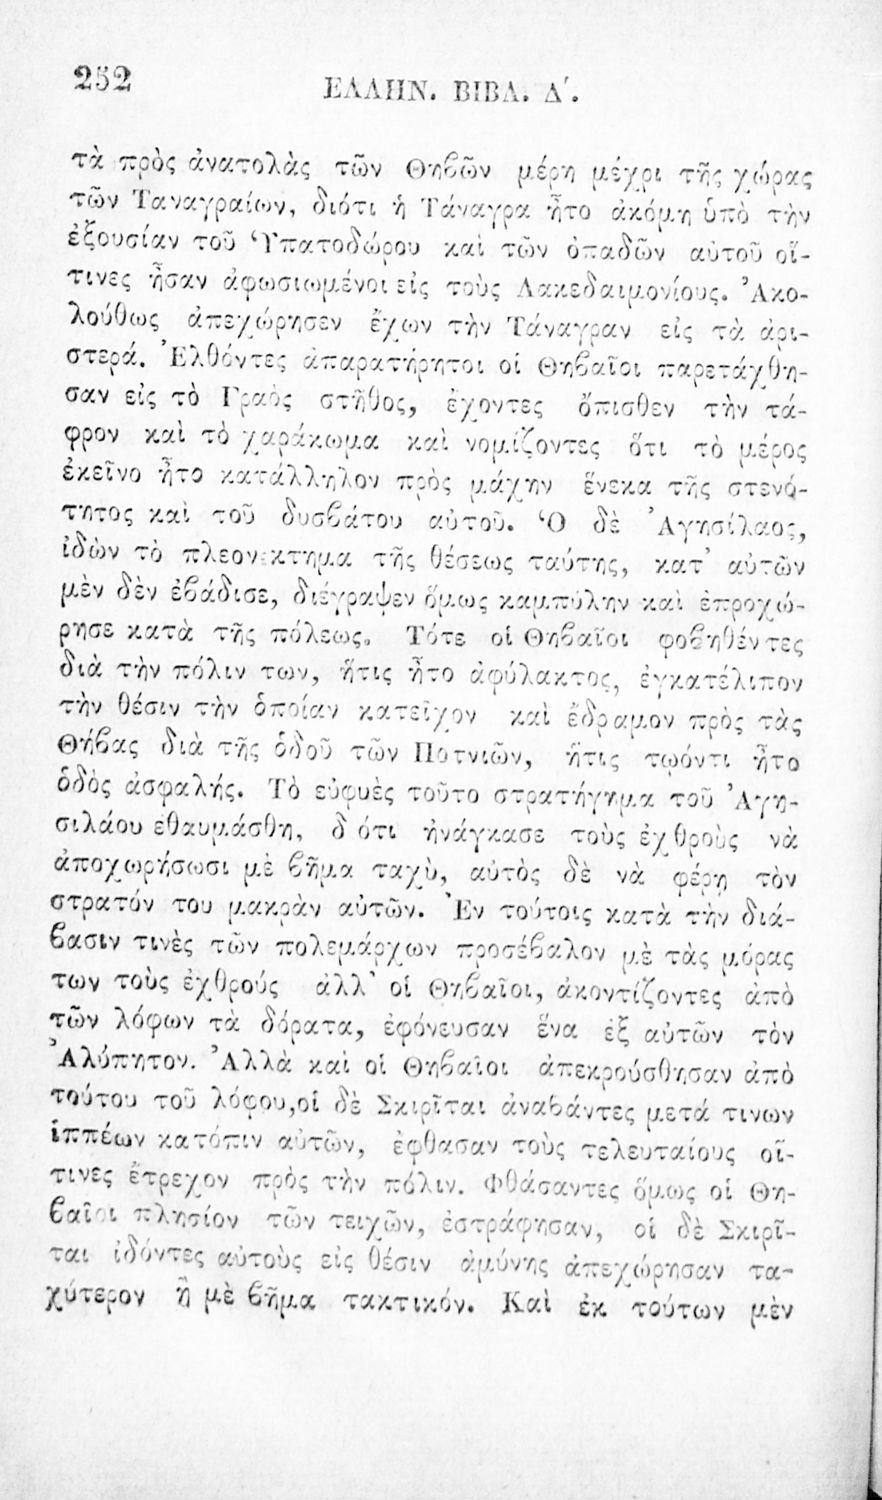 252
ΕΛΛΗΝ. ΒΙΒΛ. Δ΄.
τὰ πρὸς ἀνατολὰς τῶν Θηβῶν μέρη μέχρι τῆς χώρας
τῶν Ταναγραίων, διότι ἡ Τάναγρα ἦτο ἀκόμη ὑπὸ τὴν
ἐξουσίαν τοῦ Ὑπατοδώρου καὶ τῶν ὀπαδῶν αὐτοῦ οἵ-
τινες ἦσαν ἀφωσιωμένοι εἰς τοὺς Λακεδαιμονίους. Ἀκο-
λούθως ἀπεχώρησεν ἔχων τὴν Τάναγραν εἰς τὰ ἀρι-
στερά. Ἐλθόντες ἀπαρατήρητοι οἱ Θηβαῖοι παρετάχθη-
σαν εἰς τὸ Γραὸς στῆθος, ἔχοντες ὄπισθεν τὴν τά-
φρον καὶ τὸ χαράκωμα καὶ νομίζοντες ὅτι τὸ μέρος
ἐκεῖνο ἦτο κατάλληλον πρὸς μάχην ἕνεκα τῆς στενό-
τητος καὶ τοῦ δυσβάτου αὐτοῦ. Ὁ δὲ Ἀγησίλαος,
ἰδὼν τὸ πλεονέκτημα τῆς θέσεως ταύτης, κατ' αὐτῶν
μὲν δὲν ἐβάδισε, διέγραψεν ὅμως καμπύλην καὶ ἐπροχώ-
ρησε κατὰ τῆς πόλεως. Τότε οἱ Θηβαῖοι φοβηθέντες
διὰ τὴν πόλιν των, ἥτις ἦτο ἀφύλακτος, ἐγκατέλιπον
τὴν θέσιν τὴν ὁποίαν κατεῖχον καὶ ἔδραμον πρὸς τὰς
Θήβας διὰ τῆς ὁδοῦ τῶν Ποτνιῶν, ἥτις τῳόντι ἦτο
ὁδὸς ἀσφαλής. Τὸ εὐφυὲς τοῦτο στρατήγημα τοῦ Ἀγη-
σιλάου ἐθαυμάσθη, δ ότι ἠνάγκασε τοὺς ἐχθροὺς νὰ
ἀποχωρήσωσι μὲ βῆμα ταχὺ, αὐτὸς δὲ νὰ φέρῃ τὸν
στρατόν του μακρὰν αὐτῶν. Ἐν τούτοις κατὰ τὴν διά-
βασιν τινὲς τῶν πολεμάρχων προσέβαλον μὲ τὰς μόρας
των τοὺς ἐχθρούς ἀλλ' οἱ Θηβαῖοι, ἀκοντίζοντες ἀπὸ
τῶν λόφων τὰ δόρατα, ἐφόνευσαν ἕνα ἐξ αὐτῶν τὸν
Ἀλύπητον. Ἀλλὰ καὶ οἱ Θηβαῖοι ἀπεκρούσθησαν ἀπὸ
τούτου τοῦ λόφου,οἱ δὲ Σκιρῖται ἀναβάντες μετά τινων
ἱππέων κατόπιν αὐτῶν, ἔφθασαν τοὺς τελευταίους οἵ-
τινες ἔτρεχον πρὸς τὴν πόλιν. Φθάσαντες ὅμως οἱ Θη-
βαῖοι πλησίον τῶν τειχῶν, ἐστράφησαν, οἱ δὲ Σκιρῖ-
ται ἰδόντες αὐτοὺς εἰς θέσιν ἀμύνης ἀπεχώρησαν τα-
χύτερον ἢ μὲ βῆμα τακτικόν. Καὶ ἐκ τούτων μὲν